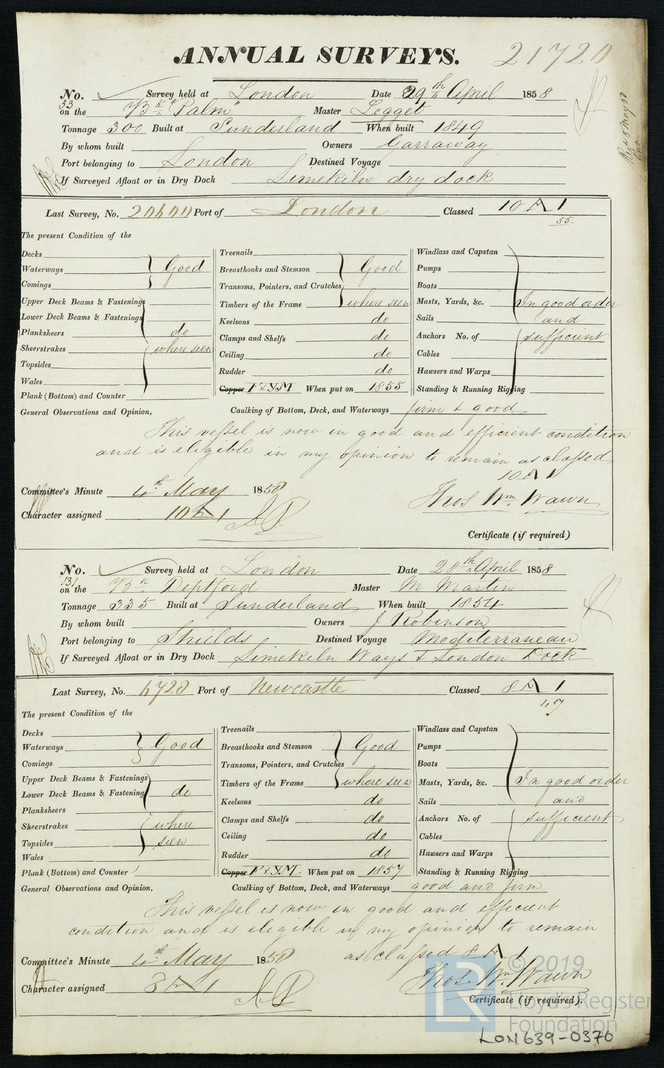 ANNUAL SURVEYS. 21720
No. Survey held at London Date 29th April 1858
33 on the Bk Palm Master Legget
Tonnage 300 Built at Sunderland When built 1849
By whom built Owners Garraway
Port belonging to London Destined Voyage
If Surveyed Afloat or in Dry Dock Limekiln dry dock
Last Survey, No. Port of London Classed 10 A 1
55
The present Condition of the
Decks
Waterways Good
Comings
Upper Deck Beams & Fastenings
Lower Deck Beams & Fastenings
Planksheers do
Sheerstrakes where seen
Topsides
Wales
Plank (Bottom) and Counter
Treenails
Breasthooks and Stemson Good
Transoms, Pointers, and Crutches
Timbers of the Frame where seen
Keelsons do
Clamps and Shelfs do
Ceiling do
Rudder do
Copper F&YM When put on 1855
Windlass and Capstan
Pumps
Boats
Masts, Yards, &c. In good order
Sails and
Anchors No. of sufficient
Cables
Hawsers and Warps
Standing & Running Rigging
General Observations and Opinion, Caulking of Bottom, Deck, and Waterways firm & good
This vessel is now in good and efficient condition
and is eligible in my opinion to remain as classed
10 A 1
Committee's Minute 4th May 1858
Character assigned 10 A 1
Thos Wm Wawn
Certificate (if required)
No. Survey held at London Date 28th April 1858
131 on the Bk Deptford Master M Martin
Tonnage 335 Built at Sunderland When built 1854
By whom built Owners J Robinson
Port belonging to Shields Destined Voyage Mediterranean
If Surveyed Afloat or in Dry Dock Limekiln Ways & London Dock
Last Survey, No. 4728 Port of Newcastle Classed 8 A 1
47
The present Condition of the
Decks
Waterways Good
Comings
Upper Deck Beams & Fastenings
Lower Deck Beams & Fastenings do
Planksheers
Sheerstrakes where
Topsides seen
Wales
Plank (Bottom) and Counter
Treenails
Breasthooks and Stemson Good
Transoms, Pointers, and Crutches
Timbers of the Frame where seen
Keelsons do
Clamps and Shelfs do
Ceiling do
Rudder do
Copper F&YM. When put on 1857
Windlass and Capstan
Pumps
Boats
Masts, Yards, &c. In good order
Sails and
Anchors No. of sufficient
Cables
Hawsers and Warps
Standing & Running Rigging
General Observations and Opinion, Caulking of Bottom, Deck, and Waterways good and firm
This vessel is now in good and efficient
condition and is eligible in my opinion to remain
as classed 8 A 1
Committee's Minute 4th May 1858
Character assigned 8 A 1
Thos. Wm. Wawn
Certificate (if required).
© 2019
Lloyd's Register
Foundation
LON639-0370